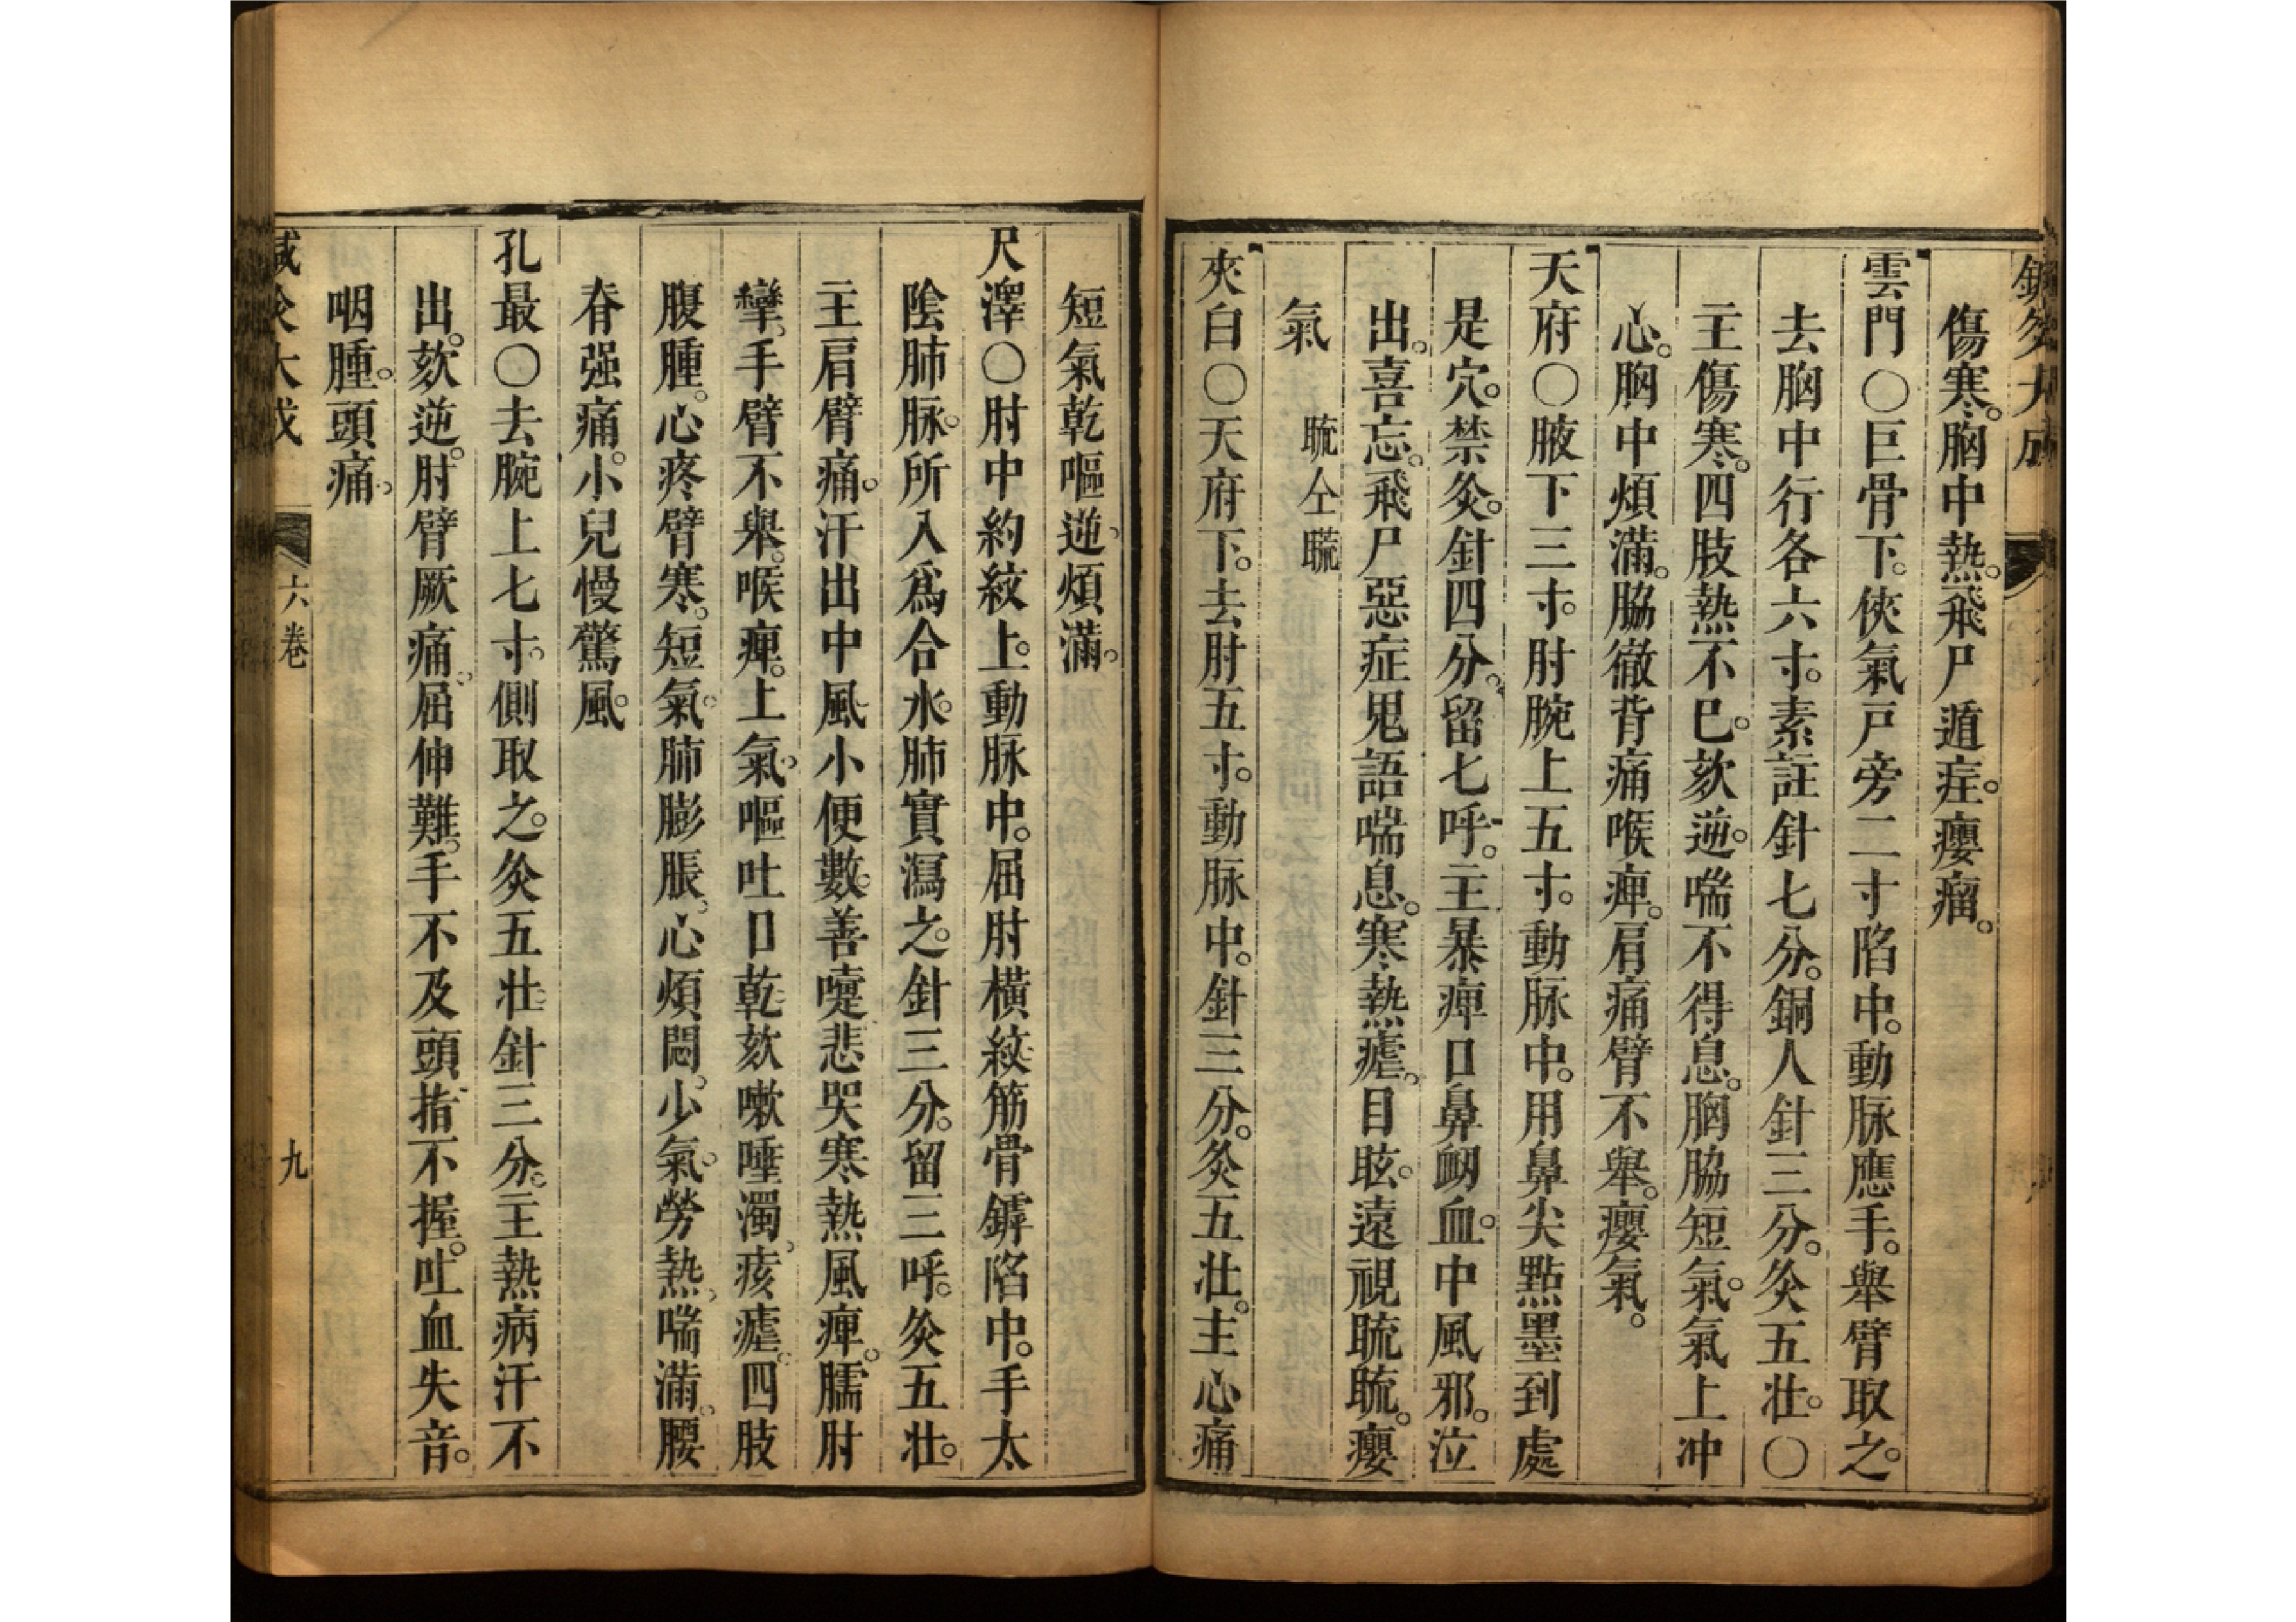 傷寒。胸中熱。飛尸遁疰。癭瘤。
雲門○巨骨下。俠氣戸旁二寸陷中。動脉應手。舉臂取之。
去胸中行各六寸。素註針七分。銅人針三分。灸五壯。○
主傷寒。四肢熱不巳。欬逆。喘不得息。胸脇短氣。氣上冲
心。胸中煩滿。脇徹背痛喉痺。肩痛臂不舉。癭氣。
天府○腋下三寸。肘腕上五寸。動脉中。用鼻尖點墨到處
是穴。禁灸。針四分。留七呼。主暴痺口鼻衂血。中風邪。泣
出。喜忘。飛尸惡疰鬼語喘息。寒熱瘧。目眩。遠視䀮䀮。癭
氣 䀮仝䀮
夾白○天府下。去肘五寸。動脉中。針三分。灸五壯。主心痛
短氣乾嘔逆。煩滿。
尺澤○肘中約紋上。動脉中。屈肘橫紋筋骨罅陷中。手太
陰肺脉。所入爲合水。肺實瀉之。針三分。留三呼。灸五壯。
主肩臂痛。汗出中風小便數。善嚏悲哭寒熱風痺。臑肘
攣。手臂不舉。喉痺。上氣。嘔吐口乾欬嗽唾濁。痎瘧。四肢
腹腫。心疼臂寒。短氣。肺膨脹。心煩悶。少氣。勞熱。喘滿。腰
脊强痛。小兒慢驚風。
孔最○去腕上七寸。側取之。灸五壯。針三分。主熱病汗不
出。欬逆。肘臂厥痛。屈伸難。手不及頭。指不握。吐血失音。
咽腫。頭痛。
六卷
九